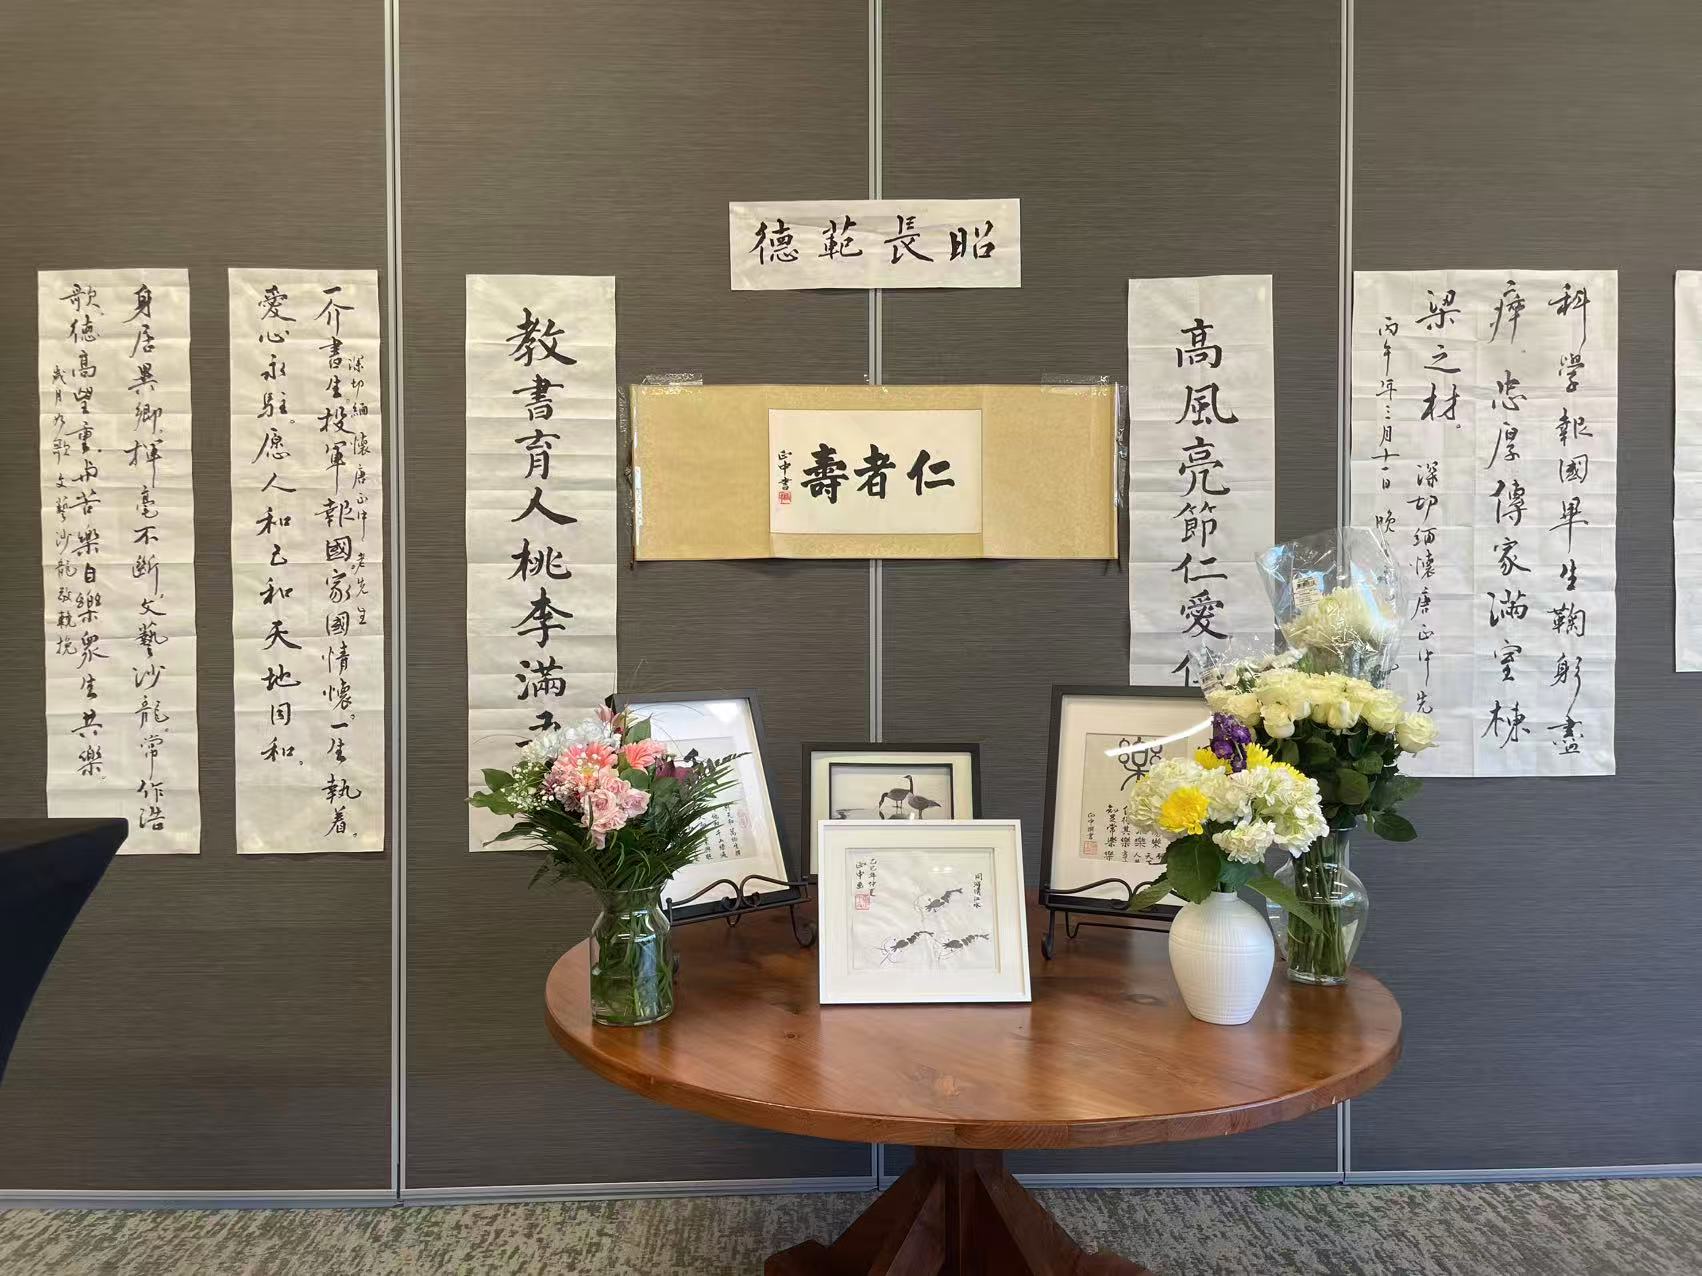 德範長昭
仁者壽
正中書
高風亮節仁愛
教書育人桃李滿
科學報國畢生鞠躬盡
瘁。忠厚傳家滿室棟
梁之材。
深切緬懷唐正中先
丙午年三月十一日 晚
深切緬懷唐正中老先生
一介書生投軍報國家國情懷。一生執着。
愛心永駐。愿人和己和天地同和。
身居異鄉,揮毫不斷,文藝沙龍,常作浩
歌,德高望重,與苦樂自樂眾生共樂。
文藝沙龍敬輓
樂
知足常樂
正中撰書
同湖清江水
乙巳年仲夏
正中画